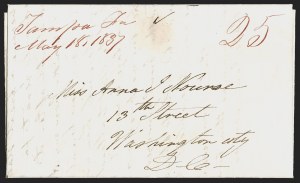 Tampa Fa
May 18, 1837
25
Miss Anna J Nourse
13th Street
Washington city
D. C.